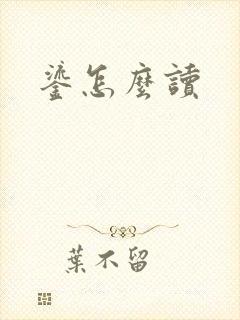 鎏怎麼讀
葉不留